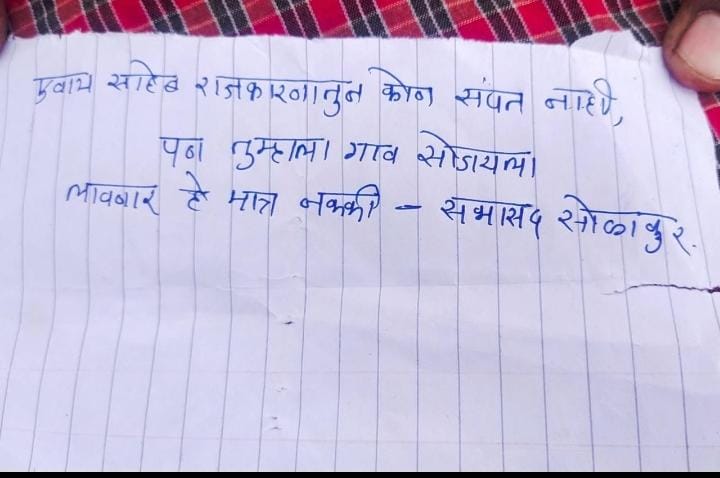 साहेब राजकारनातुन कोन संपत नाही,
पन तुम्हाला गाव सोडायला
लावनार हे मात्र नक्की - सभासद सोळाकुर.